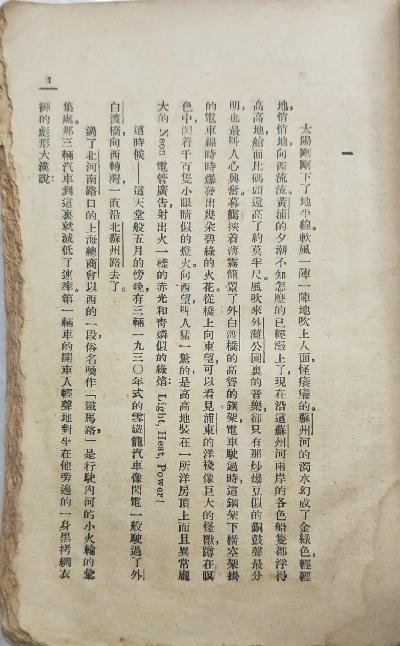 一
太陽剛剛下了地平線。軟風一陣一陣地吹上人面,怪癢癢的。蘇州河的濁水幻成了金綠色,輕輕
地,悄悄地,向西流流。黃浦的夕潮不知怎麼的已經漲上了,現在沿這蘇州河兩岸的各色船隻都浮得
高高地,艙面比碼頭還高了約莫半尺。風吹來外灘公園裏的音樂,卻只有那炒爆豆似的銅鼓聲最分
明,也最叫人心興奮。暮靄挾着薄霧籠罩了外白渡橋的高聳的鋼架,電車駛過時,這鋼架下橫空架掛
的電車線時時爆發出幾朵碧綠的火花。從橋上向東望,可以看見浦東的洋棧像巨大的怪獸,蹲在暝
色中,閃着千百隻小眼睛似的燈火。向西望,叫人猛一驚的,是高高地裝在一所洋房頂上而且異常龐
大的 Neon 電管廣告,射出火一樣的赤光和青燐似的綠焰:Light, Heat, Power!
這時候——這天堂般五月的傍晚,有三輛一九三〇年式的雪鐵籠汽車像閃電一般駛過了外
白渡橋,向西轉彎,一直沿北蘇州路去了。
過了北河南路口的上海總商會以西的一段,俗名喚作「鐵馬路」,是行駛內河的小火輪的彙
集處。那三輛汽車到這裏就減低了速率。第一輛車的開車人輕聲地對坐在他旁邊的一身黑拷綢衣
褲的彪形大漢說:
1